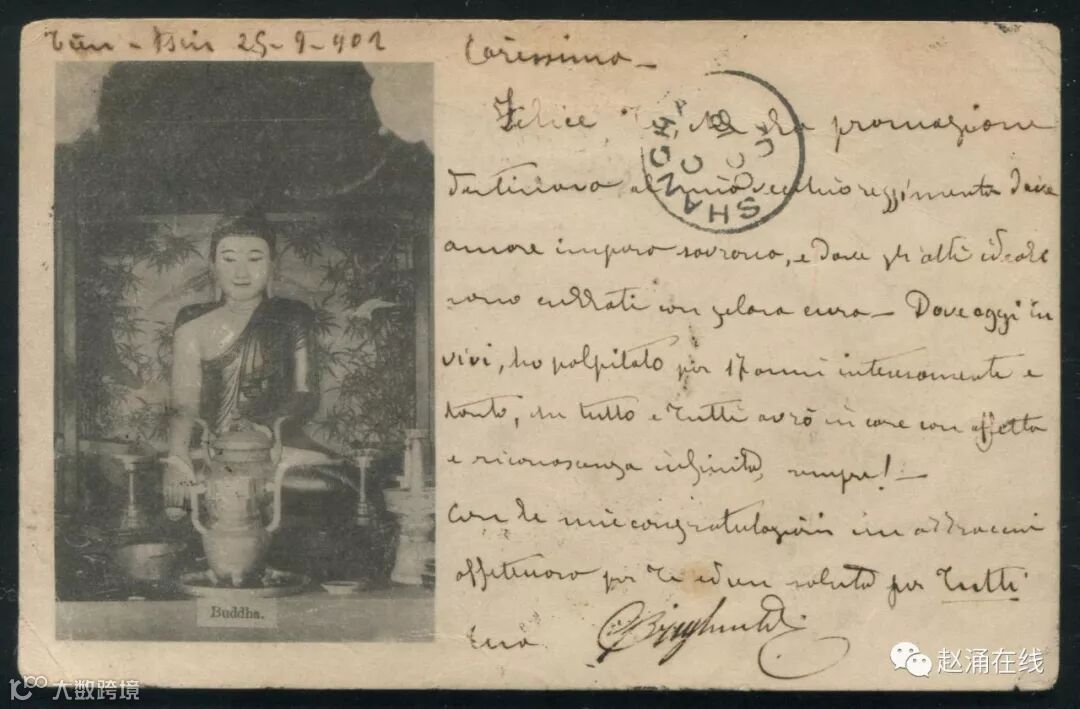 Tien-Tsin 25-9-901
Carissimo -
Felice promozione
destinava al mio vecchio reggimento dove
amore impera sovrano, e dove gli alti ideali
sono con gelosa cura - Dove oggi tu
vivi, ho palpitato per 17 anni intensamente e
tanto, di tutto e tutti avrò in core con affetto
e riconoscenza infinita, sempre! -
Con le mie congratulazioni un abbraccio
affettuoso per te ed un saluto per tutti
tuo
SHANGHAI
Buddha.
赵涌在线
大数跨境